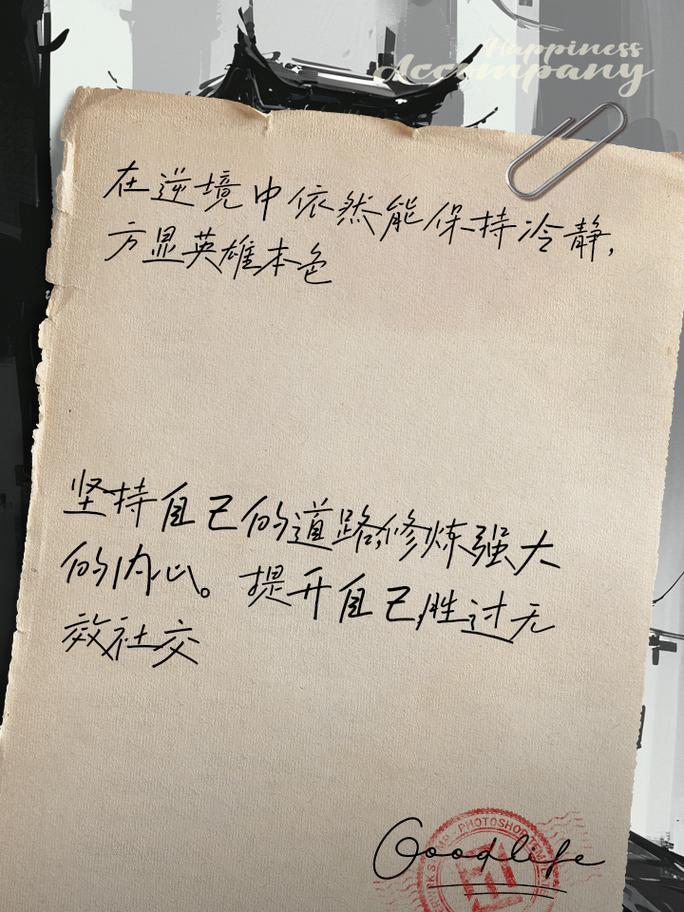 Happiness
Accompany
在逆境中依然能保持冷静,
方显英雄本色
坚持自己的道路,修炼强大
的内心。提升自己,胜过无
效社交
PHOTOSHOP
Goodlife